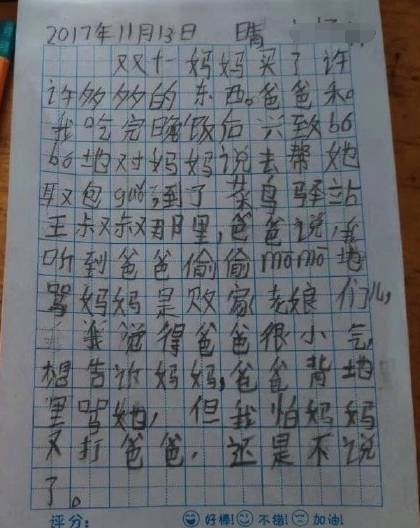 2017年11月13日 晴
双十一妈妈买了许
许多多的东西。爸爸和
我吃完晚饭后兴致bó
bó地对妈妈说去帮她
取包guǒ,到了菜鸟驿站
王叔叔那里,爸爸说,我
听到爸爸偷偷mōmō地
骂妈妈是败家老娘们儿,
我觉得爸爸很小气,
想告诉妈妈,爸爸背地
里骂她,但我怕妈妈
又打爸爸.还是不说
了。
评分: 好棒! 不错! 加油!